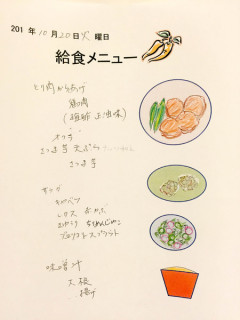 201 年10月20日火曜日
給食メニュー
とり肉から揚げ
鶏肉
(塩麹 正油味)
オクラ
さつま芋 天ぷら
さつま芋
サラダ
キャベツ
レタス
きゅうり
ブロッコリースプラウト
味噌汁
大根
揚げ